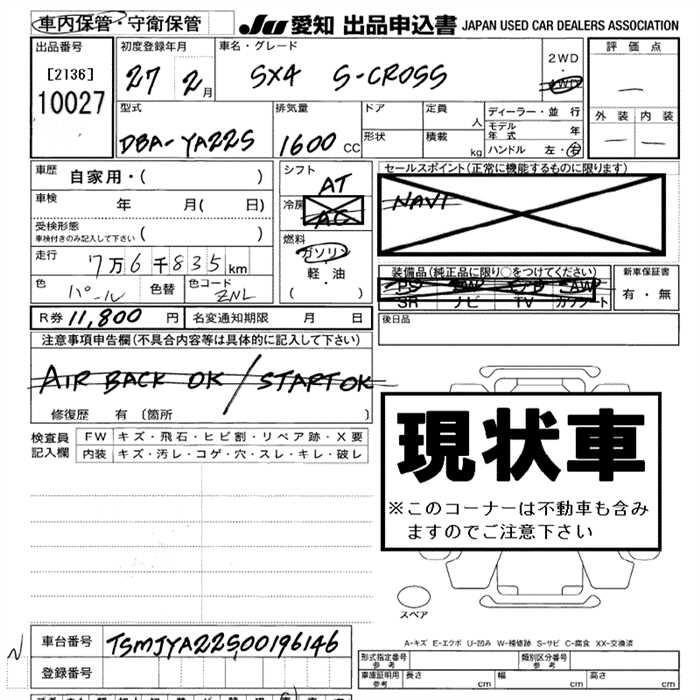 車内保管・守衛保管
JU 愛知 出品申込書 JAPAN USED CAR DEALERS ASSOCIATION
出品番号 初度登録年月 車名・グレード 評価点
[2136] 27 2月 SX4 S-CROSS 2WD・4WD —
10027
型式 排気量 ドア 定員 人 ディーラー・並行 外装 内装
モデル年式 年
DBA-YA22S 1600 CC 形状 積載 kg ハンドル 左・右 — —
車歴 自家用・( ) シフト AT セールスポイント(正常に機能するものに限ります)
車検 年 月( 日) 冷房 AC NAVI
受検形態
車検付きのみ記入して下さい ( ) 燃料 ガソリン
走行 7万6千835km 軽・油 装備品(純正品に限り○をつけてください) 新車保証書
色 パール 色替 色コード ZNL ( ・ ) PS PW エアB AW 有・無
SR ナビ TV カワシート
R券 11,800 円 名変通知期限 月 日 後日品
注意事項申告欄(不具合内容等は具体的に記入して下さい)
AIR BACK OK / START OK
修復歴 有 〔箇所 〕
検査員記入欄 FW キズ・飛石・ヒビ割・リペア跡・X要
内装 キズ・汚レ・コゲ・穴・スレ・キレ・破レ
現状車
※このコーナーは不動車も含み
ますのでご注意下さい
スペア
A-キズ E-エクボ U-凹み W-補修跡 S-サビ C-腐食 XX-交換済
N 車台番号 TSMJYA22S00196146
登録番号
形式指定番号 参考 類別区分番号 参考
車庫証明用 参考 長さ cm 幅 cm 高さ cm